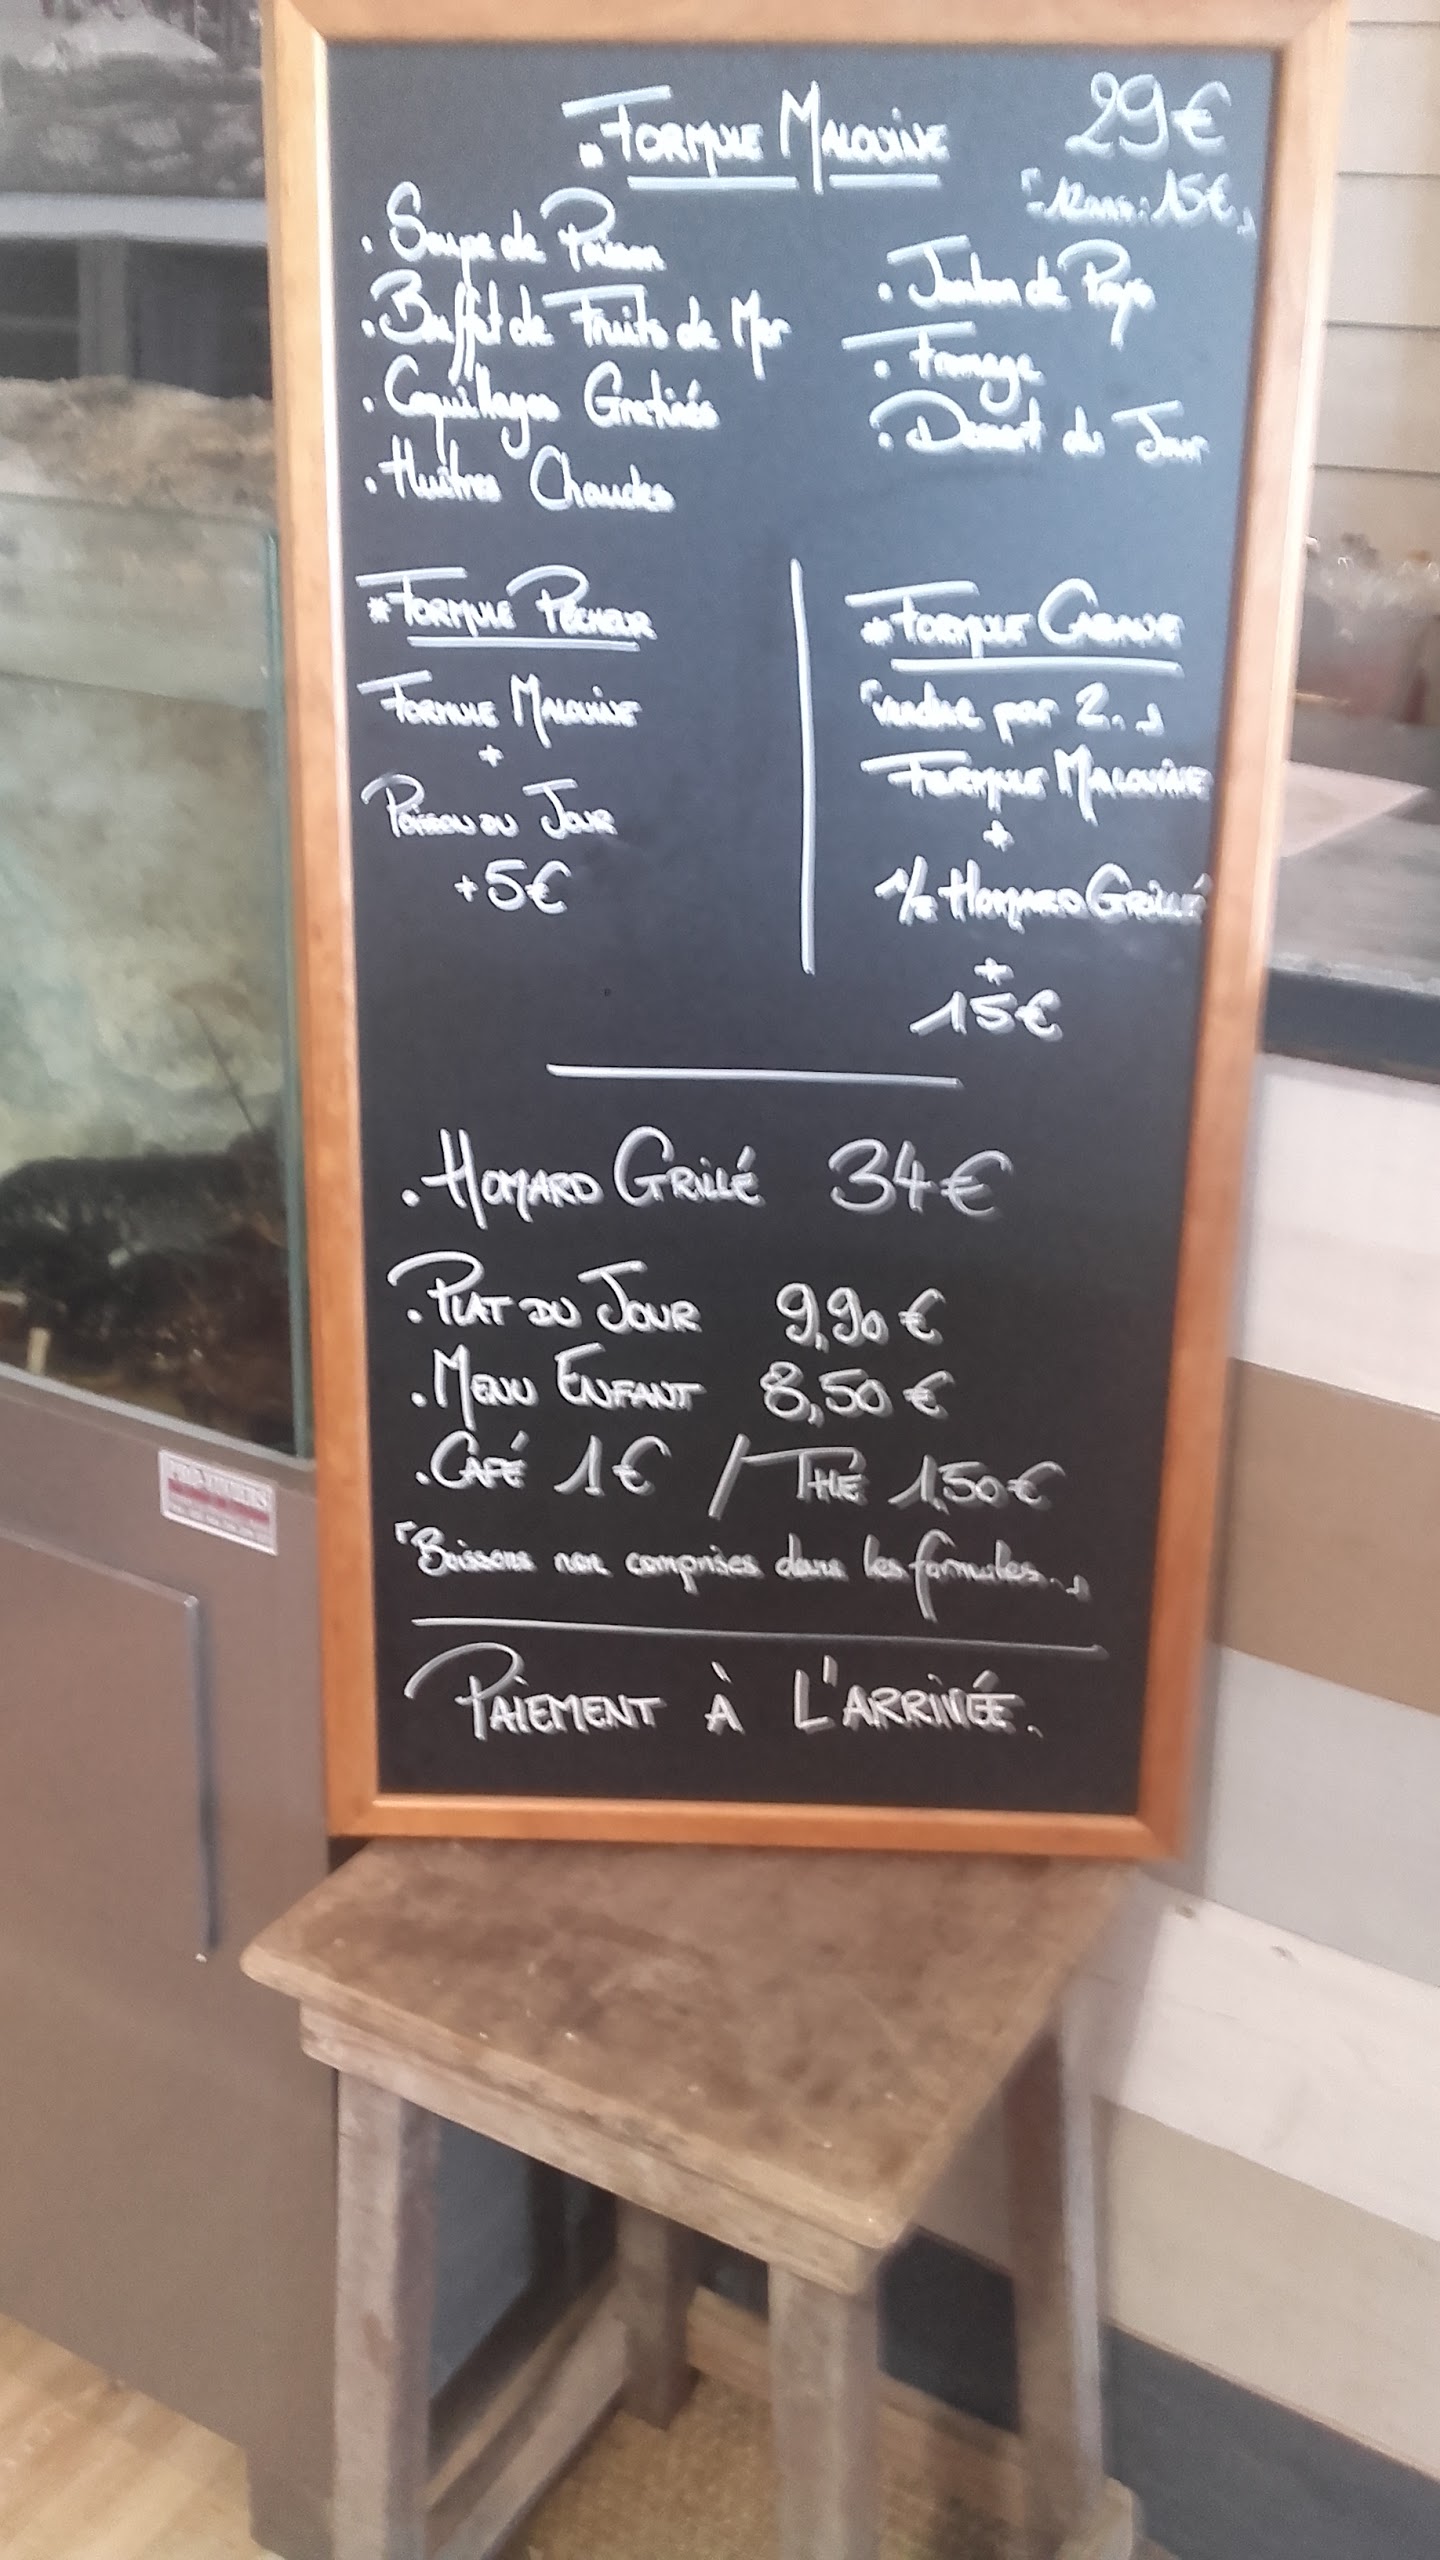 . Formule Malouine 29€
"-12ans : 15€"
. Soupe de Poisson
. Buffet de Fruits de Mer
. Coquillages Gratinés
. Huîtres Chaudes
. Jambon de Pays
. Fromage
. Dessert du Jour
* Formule Pêcheur
Formule Malouine
+
Poisson du Jour
+5€
* Formule Cabane
"vendue par 2.."
Formule Malouine
+
1/2 Homard Grillé
+
15€
. Homard Grillé 34€
. Plat du Jour 9,90€
. Menu Enfant 8,50€
. Café 1€ / Thé 1,50€
"Boissons non comprises dans les formules.."
Paiement à l'arrivée.